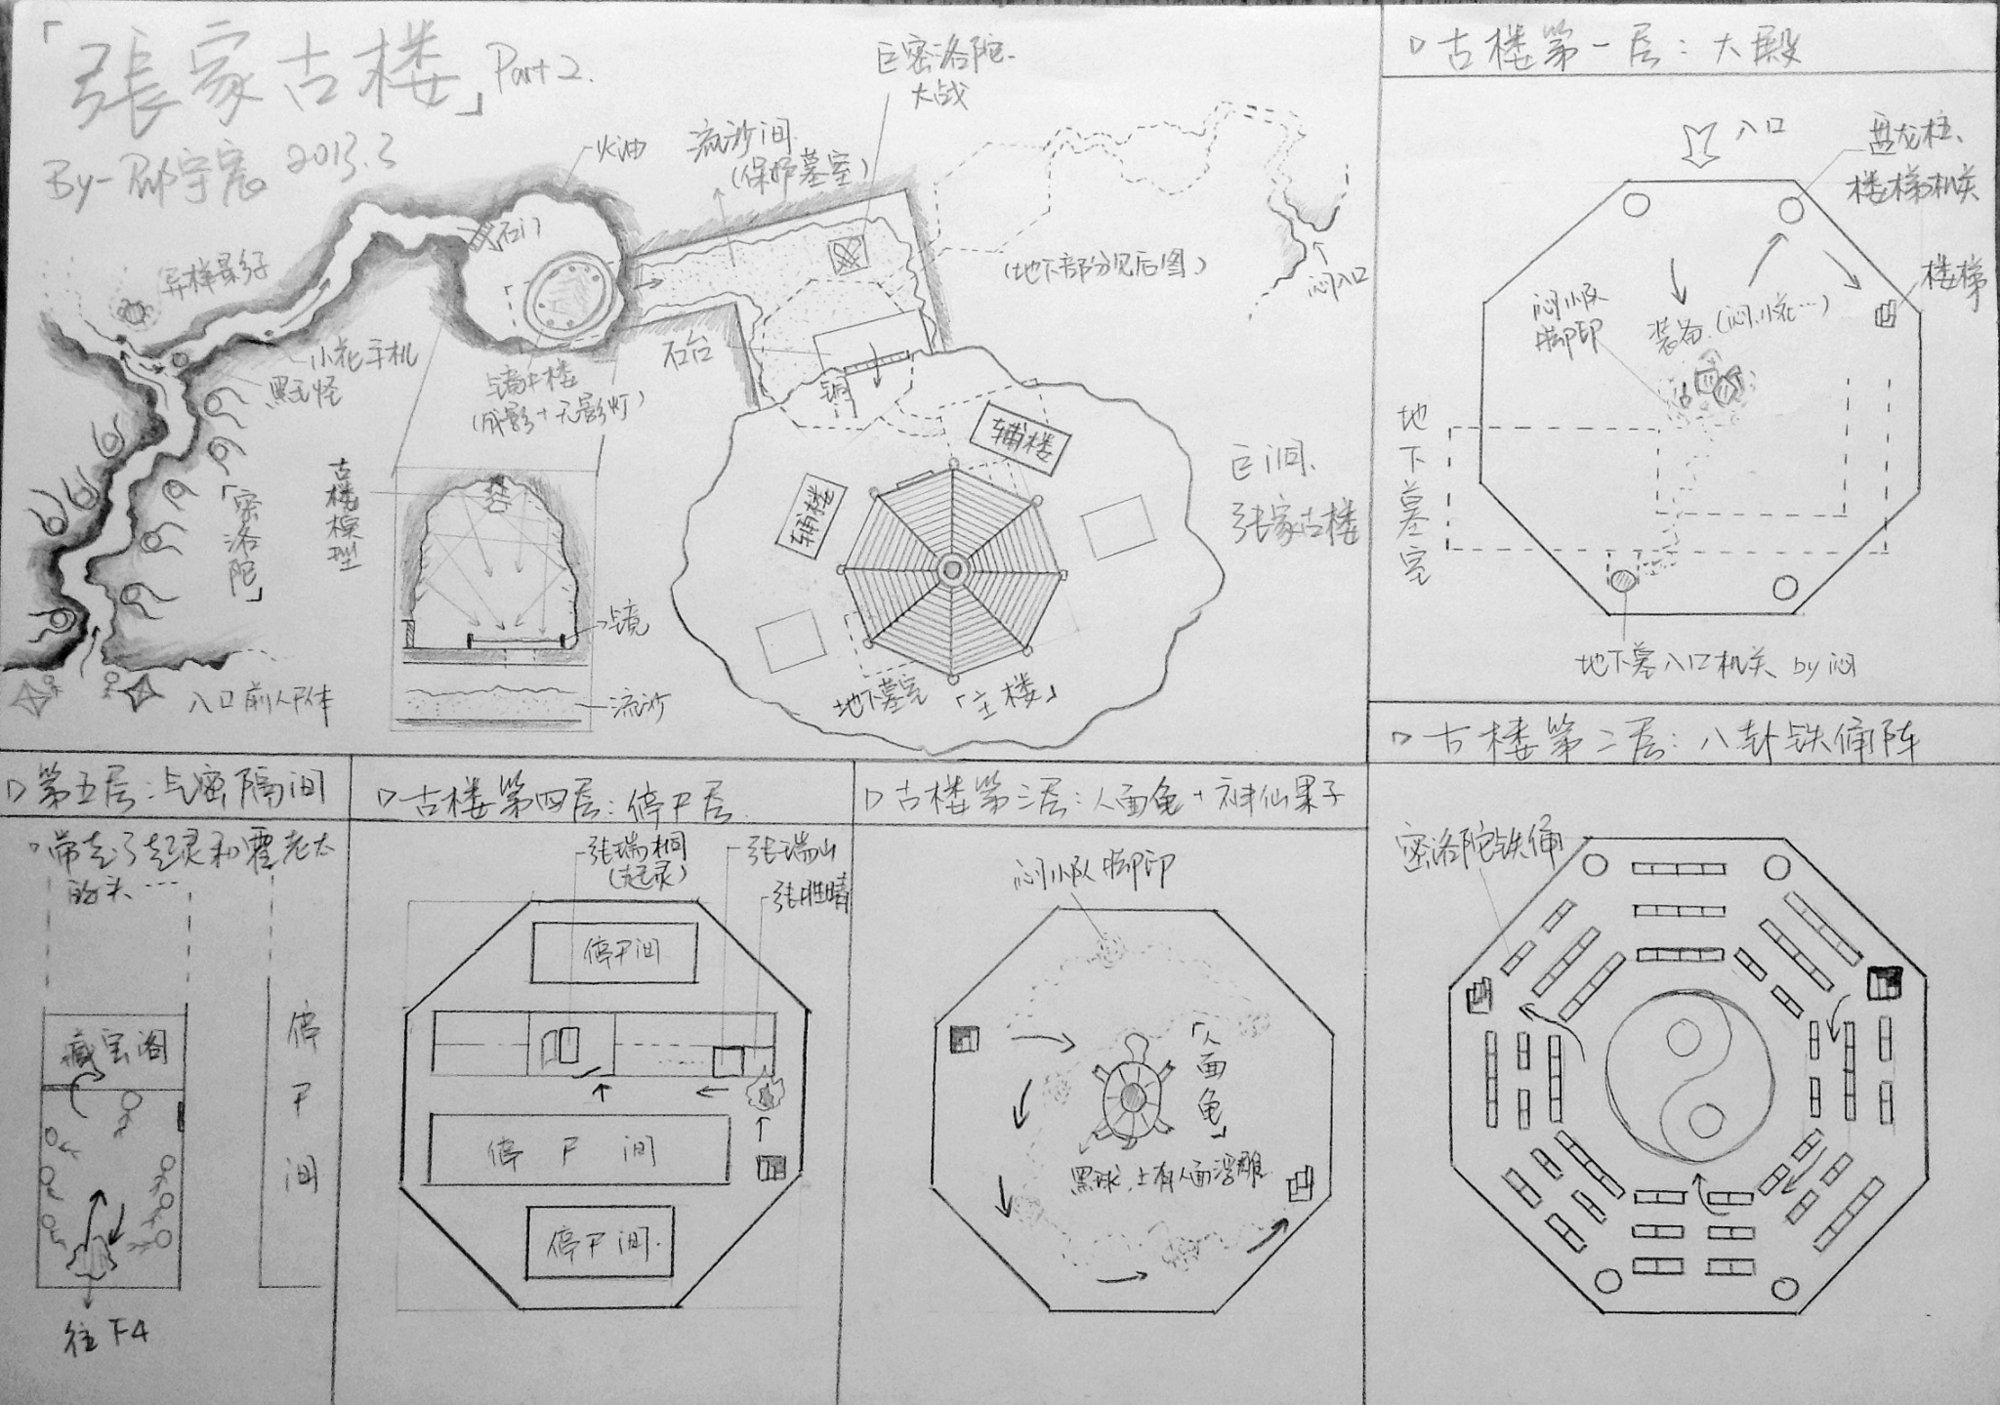 「張家古楼」Part 2.
2013.3
巨密洛陀
大战
火油
流沙间
(保护墓室)
石门
(地下部分见后图)
闷入口
小花手机
石台
镜中楼
(成影+无影灯)
铜
古楼模型
「密洛陀」
辅楼
辅楼
巨洞、
张家古楼
镜
流沙
地下墓室
「主楼」
▷古楼第一层:大殿
入口
盘龙柱、
楼梯机关
楼梯
闷小队
脚印
装备(闷、小花…)
地下墓室
地下墓入口机关 by 闷
▷古楼第二层:八卦铁俑阵
密洛陀铁俑
▷古楼第三层:人面龟+神仙果子
闷小队脚印
「人面龟」
黑球,上有人面浮雕
▷古楼第四层:停尸层
张瑞桐
(起灵)
张瑞山
张胜晴
停尸间
停尸间
停尸间.
▷第五层:
和霍老太
的头…
藏宝阁
停尸间
往下4